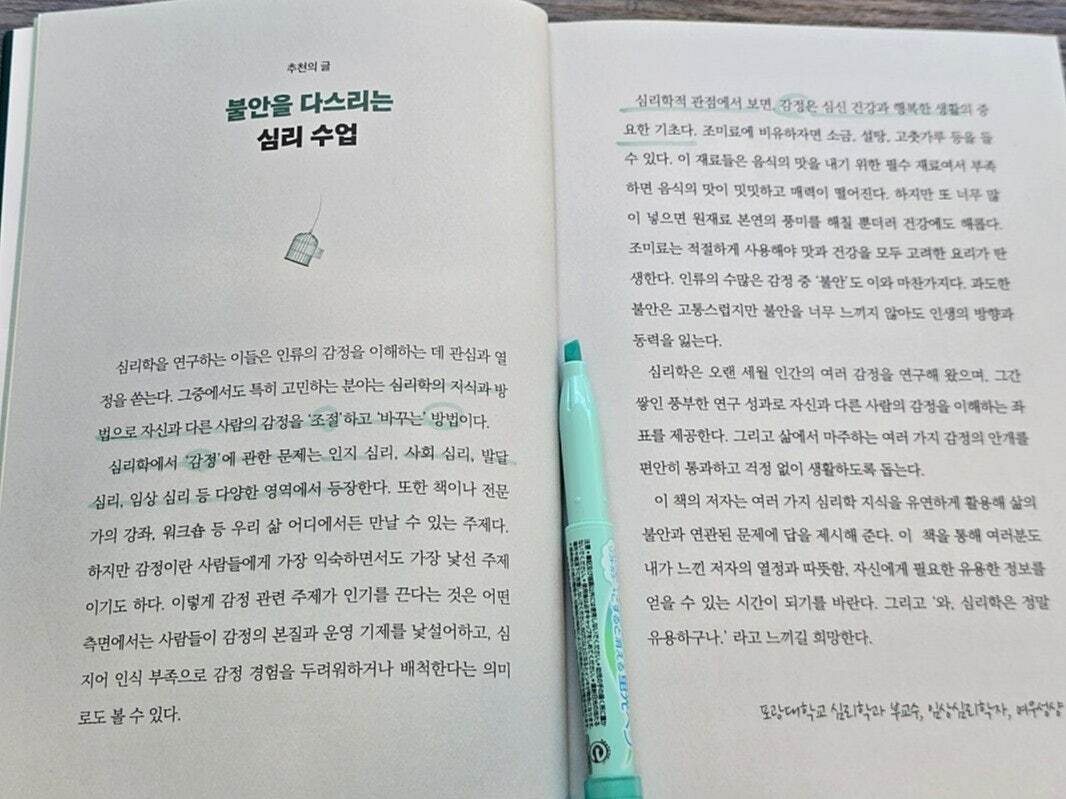 추천의 글
불안을 다스리는
심리 수업
심리학을 연구하는 이들은 인류의 감정을 이해하는 데 관심과 열
정을 쏟는다. 그중에서도 특히 고민하는 분야는 심리학의 지식과 방
법으로 자신과 다른 사람의 감정을 ‘조절’하고 ‘바꾸는’ 방법이다.
심리학에서 ‘감정’에 관한 문제는 인지 심리, 사회 심리, 발달
심리, 임상 심리 등 다양한 영역에서 등장한다. 또한 책이나 전문
가의 강좌, 워크숍 등 우리 삶 어디에서든 만날 수 있는 주제다.
하지만 감정이란 사람들에게 가장 익숙하면서도 가장 낯선 주제
이기도 하다. 이렇게 감정 관련 주제가 인기를 끈다는 것은 어떤
측면에서는 사람들이 감정의 본질과 운영 기제를 낯설어하고, 심
지어 인식 부족으로 감정 경험을 두려워하거나 배척한다는 의미
로도 볼 수 있다.
심리학적 관점에서 보면, 감정은 심신 건강과 행복한 생활의 중
요한 기초다. 조미료에 비유하자면 소금, 설탕, 고춧가루 등을 들
수 있다. 이 재료들은 음식의 맛을 내기 위한 필수 재료여서 부족
하면 음식의 맛이 밋밋하고 매력이 떨어진다. 하지만 또 너무 많
이 넣으면 원재료 본연의 풍미를 해칠 뿐더러 건강에도 해롭다.
조미료는 적절하게 사용해야 맛과 건강을 모두 고려한 요리가 탄
생한다. 인류의 수많은 감정 중 ‘불안’도 이와 마찬가지다. 과도한
불안은 고통스럽지만 불안을 너무 느끼지 않아도 인생의 방향과
동력을 잃는다.
심리학은 오랜 세월 인간의 여러 감정을 연구해 왔으며, 그간
쌓인 풍부한 연구 성과로 자신과 다른 사람의 감정을 이해하는 좌
표를 제공한다. 그리고 삶에서 마주하는 여러 가지 감정의 안개를
편안히 통과하고 걱정 없이 생활하도록 돕는다.
이 책의 저자는 여러 가지 심리학 지식을 유연하게 활용해 삶의
불안과 연관된 문제에 답을 제시해 준다. 이 책을 통해 여러분도
내가 느낀 저자의 열정과 따뜻함, 자신에게 필요한 유용한 정보를
얻을 수 있는 시간이 되기를 바란다. 그리고 ‘와, 심리학은 정말
유용하구나.’ 라고 느끼길 희망한다.
포광대학교 심리학과 부교수, 임상심리학자, 여우성샹